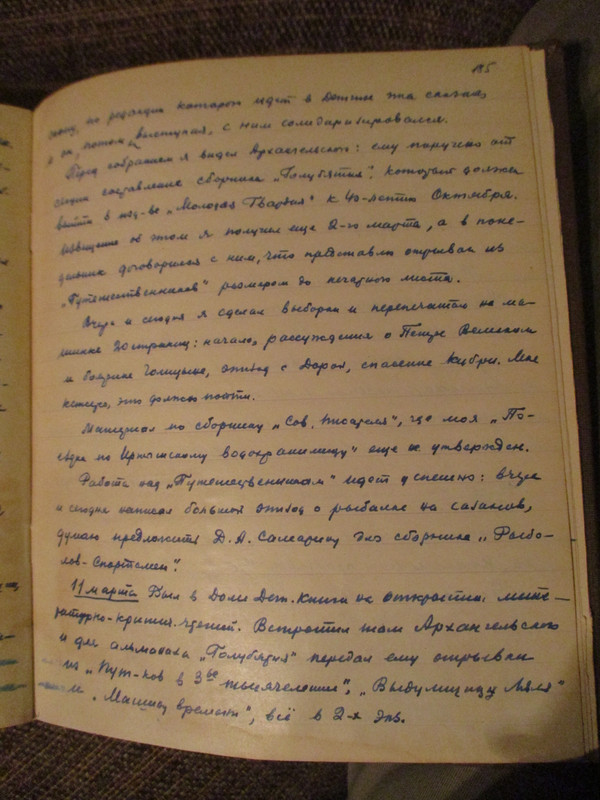 185
по редакции которой идет в Детгизе эта сказка,
а он, потом выступая, с ним солидаризировался.
Перед собранием я видел Архангельского: ему поручено от
секции составление сборника „Голубятня", который должен
выйти в изд-ве „Молодая Гвардия" к 40-летию Октября.
Извещение об этом я получил еще 2-го марта, а в поне-
дельник договорился с ним, что представлю отрывок из
„Путешественников" размером до печатного листа.
Вчера и сегодня я сделал выборки и перепечатал на ма-
шинке 20 страниц: начало, рассуждения о Петре Великом
и боярине Голицыне, эпизод с Дорой, спасение Кибри. Мне
кажется, это должно пойти.
Материал по сборнику „Сов. писателя", где моя „По-
ездка по Иртышскому водохранилищу" еще не утвержден.
Работа над „Путешественниками" идет успешно: вчера
и сегодня написал большой эпизод о рыбалке на
думаю предложить Д. А. Самарину для сборника „Рыбо-
лов-Спортсмен".
11 марта Был в Доме Дет. книги на открытии лите-
ратурно-критич. чтений. Встретил там Архангельского
и для альманаха „Голубятня" передал ему отрывки
из „Пут-ков в 3ье тысячелетие", „Выдумщицу Ляля"
и „Машину времени", всё в 2-х экз.